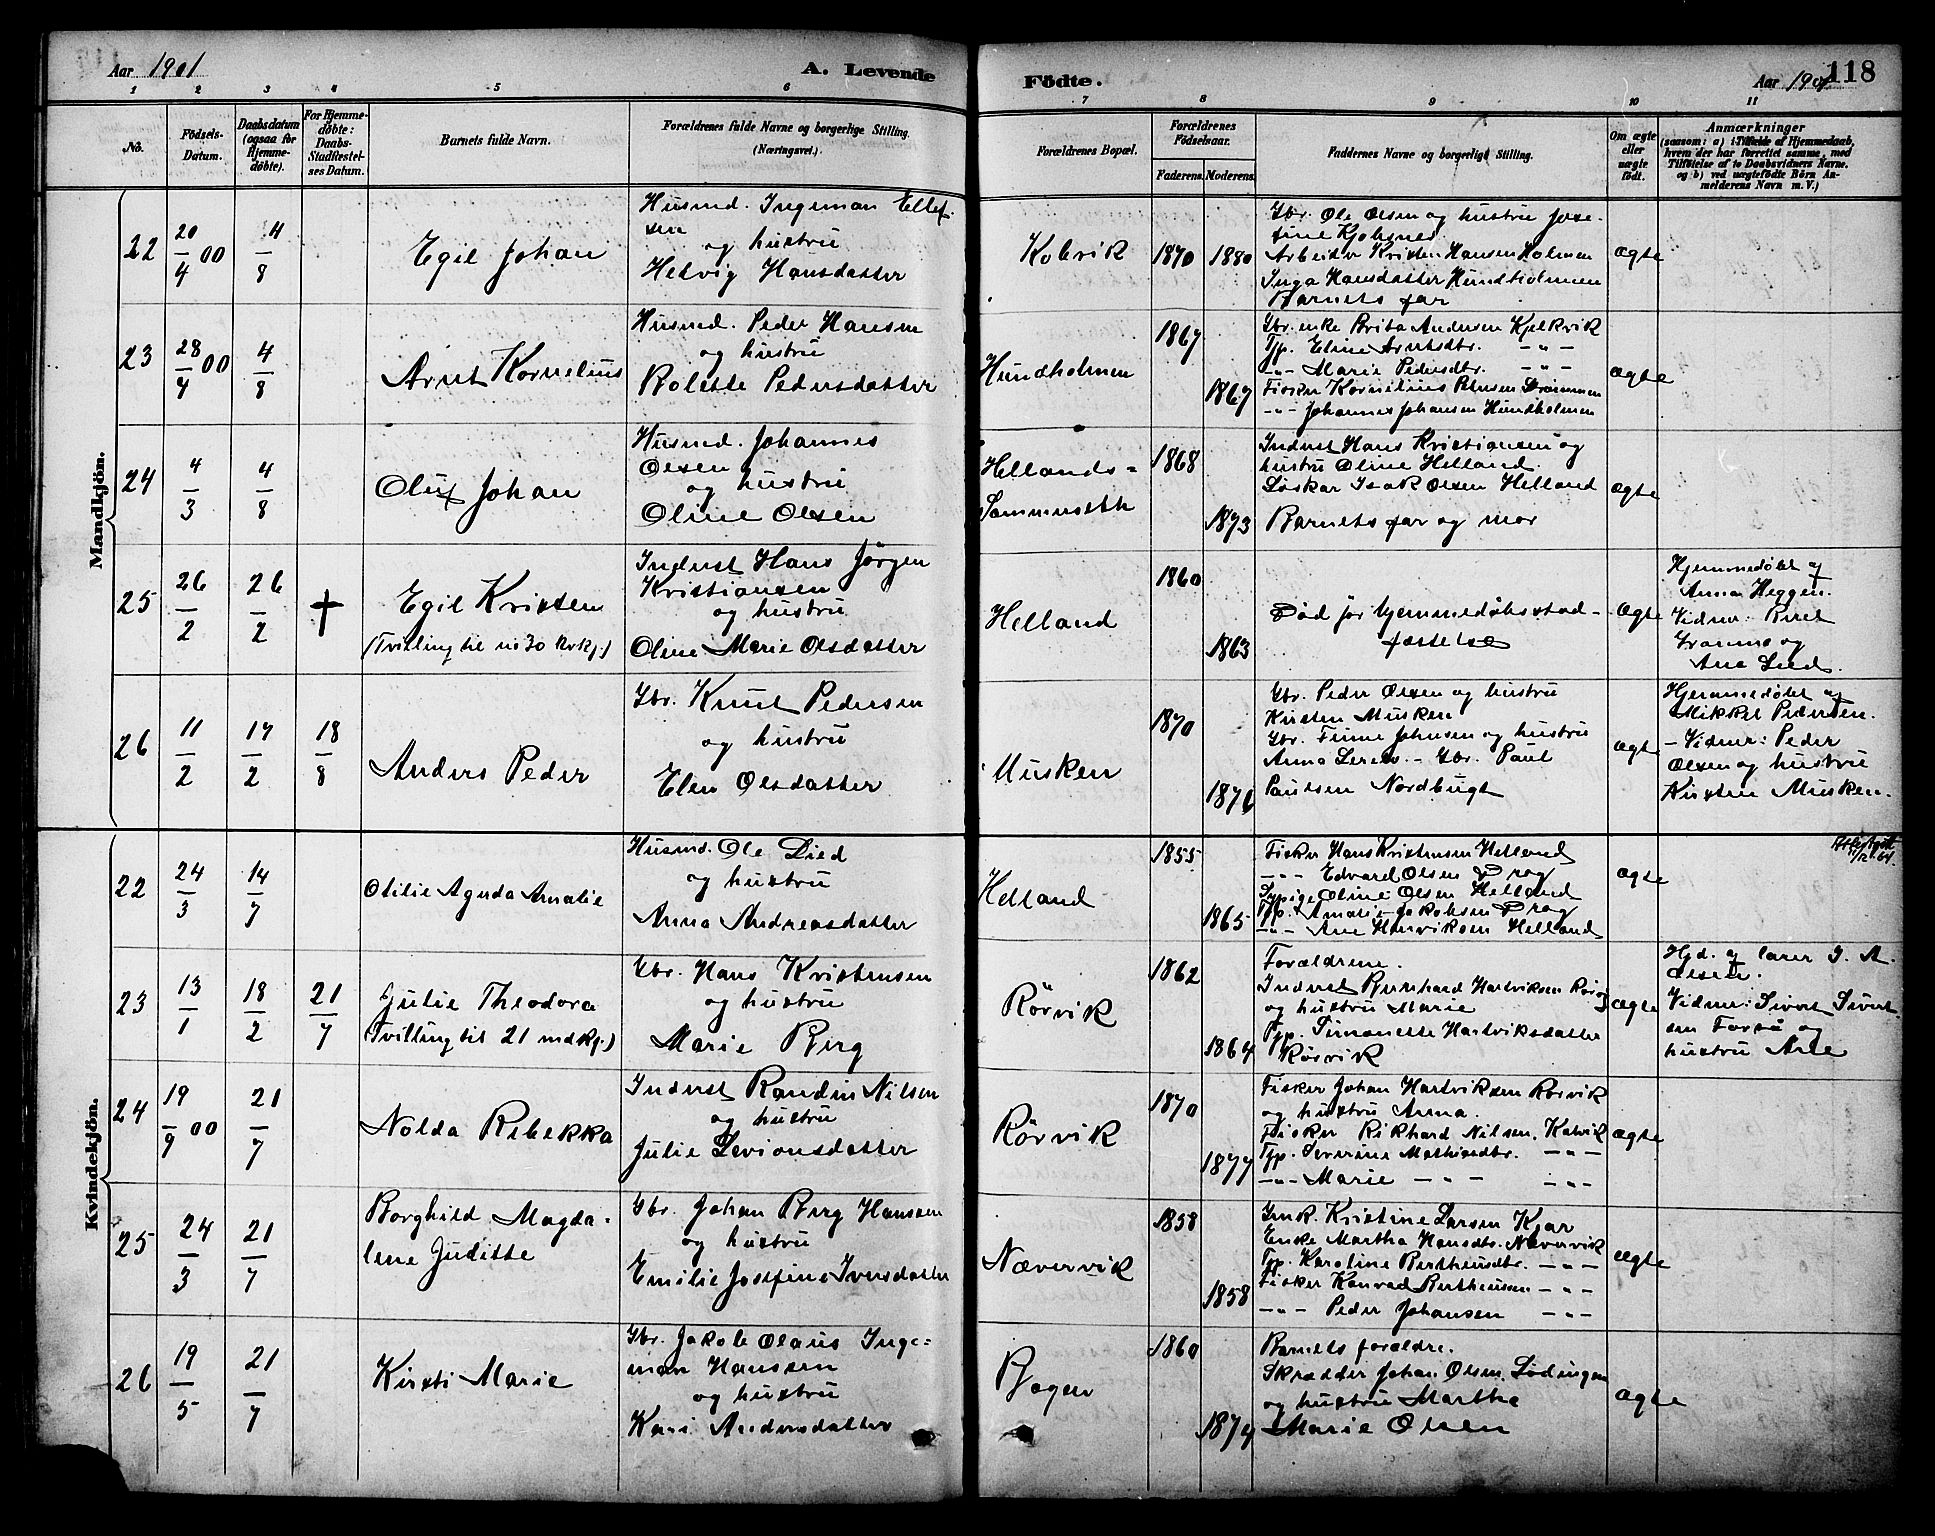 Aar 1901
A. Levende
Födte.
Aar 1901
118
1 2 3 4 5 6 7 8 9 10 11
No.
Födsels-
Datum.
Daabsdatum
(ogsaa for
Hjemme-
døbte).
For Hjemme-
døbte:
Daabs-
Stadfæstel-
ses Datum.
Barnets fulde Navn.
Forældrenes fulde Navne og borgerlige Stilling.
(Næringsvei.)
Forældrenes Bopæl.
Forældrenes
Födselsaar.
Faderens. Moderens.
Faddernes Navne og borgerlige Stilling.
Om ægte
eller
uægte
født.
Anmærkninger
(saasom: a) i Tilfælde af Hjemmedaab,
hvem der har forrettet samme, med
Tilføielse af to Daabsvidners Navne.
og b) ved uægtefødte Börn An-
melderens Navn m. V.)
Mandkjön.
22 20/4 00 4/8
Egil Johan
Husmd. Ingeman Ellef-
sen
og hustru
Hedvig Hansdatter
Kobvik
1870 1880
Gbr. Ole Olsen og hustru Jose-
fine Kjobsnes
Arbeider Kristen Hansen Holmen
Inga Hansdatter Hundholmen
Barnets far
ægte
23 28/4 00 4/8
Arnt Kornelius
Husmd. Peder Hansen
og hustru
Bolette Pedersdatter
Hundholmen
1867
1867
Gbr. enke Brita Andersen Kjelkvik
Tjp. Eline Arntsdtr. - " -
- " - Marie Pedersdtr. - " -
Fisker Kornelius Petersen Strømmen
- " - Johannes Johansen Hundholmen
ægte
24 4/3 4/8
Oluf Johan
Husmd. Johannes
Olsen
og hustru
Oline Olsen
Hellands-
1868
1873
Inderst Hans Kristiansen og
hustru Oline Helland.
Løskar Isak Olsen Helland
Barnets far og mor
ægte
25 26/2 26/2 †
Egil Kristen
(Tvilling til no 30 kvkj.)
Inderst Hans Jørgen
Kristiansen
og hustru
Oline Marie Olsdatter
Helland
1860
1863
Død før hjemmedøbsstad-
fæstelse
ægte
Hjemmedøbt af
Anna Heggen.
Vidner: Beret
og
Ane Lied.
26 11/2 17/2 18/8
Anders Peder
Gbr. Knut Pedersen
og hustru
Elen Olsdatter
Musken
1870
1876
Gbr. Peder Olsen og hustru
Kirsten Musken
Gbr. Johnsen og hustru
Anna - Gbr. Paul
Paulsen Nordbugt
ægte
Hjemmedøbt af
Mikkel Pedersen.
- Vidner: Peder
Olsen og hustru
Kirsten Musken.
Kvindekjön.
22 24/3 14/7
Otilie Agnda Amalie
Husmd. Ole Lied
og hustru
Anna Andreasdatter
Helland
1855
1865
Fisker Hans Kristensen Helland
- " - Edvard Olsen Drag
Tjpige Oline Olsen Helland
Tjp. Amalie Jakobsen Drag
- " - Ane Henriksen Helland
ægte
23 13/1 18/2 21/7
Julie Theodora
(Tvilling til 21 mdkj.)
Gbr. Hans Kristensen
og hustru
Marie Berg
Rørvik
1862
1864
Forældrene.
Inderst Bernhard Hartviksen Rørvig
og hustru Marie
Tjp. Simonette Hartviksdatter
Rørvik
ægte
Hjd. af lærer I. A.
Olsen.
Vidner: Sivert Sivert-
sen Forså og
hustru Ane
24 19/9 00 21/7
Nolda Rebekka
Inderst Randin Nilsen
og hustru
Julie Sevionsdatter
Rørvik
1870
1877
Fisker Johan Hartviksen Rørvik
og hustru Anna.
Fisker Rikhard Nilsen. Kalvik
Tjp. Severine Mathisdtr. - " -
- " - Marie - " - - " -
ægte
25 24/3 21/7
Borghild Magda-
lene Juditte
Gbr. Johan Berg Hansen
og hustru
Emilie Josefine Iversdatter
Nævervik
1858
1858
Gmk. Kristine Larsen Kjær
Enke Martha Hansdtr. Nævervik
Tjp. Karoline Bertheusdtr. - " -
Fisker Konrad Bertheussen - " -
- " - Peder Johansen - " -
ægte
26 19/5 21/7
Kirsti Marie
Gbr. Jakob Olaus Inge-
man Hanssen
og hustru
Kari Andersdatter
Bogen
1860
1874
Barnets forældre.
Skrædder Johan Olsen Lødingen
og hustru Martha
Marie Olsen
ægte